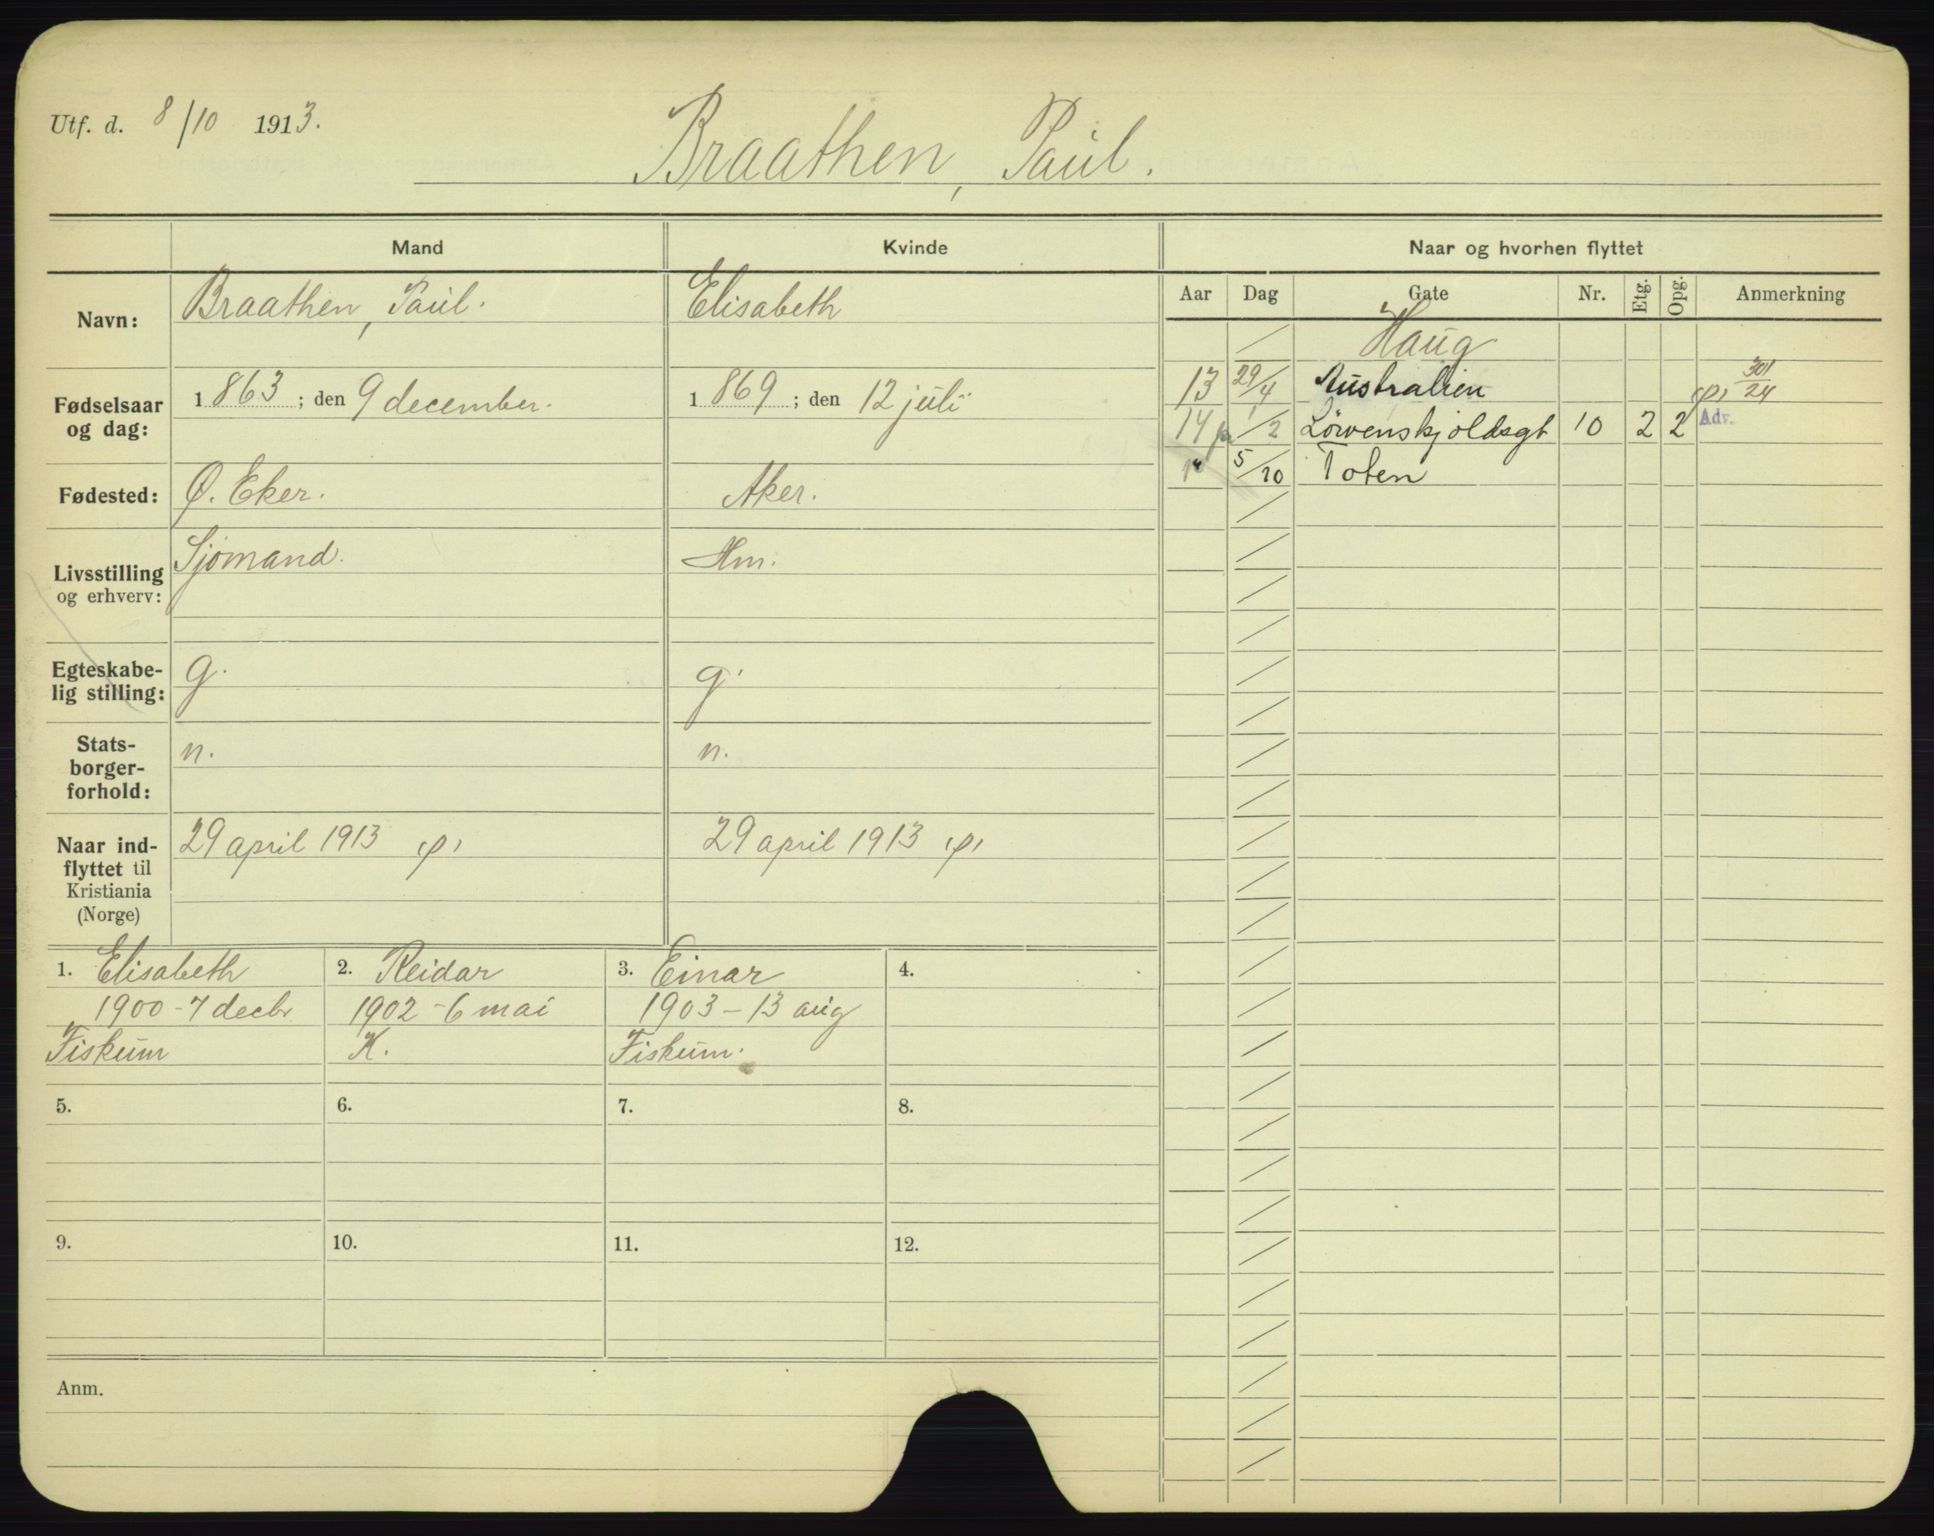 Utf. d. 8/10 1913.
Braathen, Paul.
Mand Kvinde Naar og hvorhen flyttet
Navn: Braathen, Paul. Elisabeth
Aar Dag Gate Nr. Etg. Opg. Anmerkning
Haug
Fødselsaar og dag: 1863; den 9 december. 1869; den 12 juli
13 29/4 Australien 301/24
14 /2 Løvenskjoldsgt 10 2 2 Adv.
5/10 Toten
Fødested: Ø. Eker. Aker.
Livsstilling og erhverv: Sjømand. Hm.
Egteskabe-
lig stilling: g. g.
Stats-
borger-
forhold: n. n.
Naar ind-
flyttet til
Kristiania
(Norge)
29 april 1913 29 april 1913
1. Elisabeth 2. Reidar 3. Einar 4.
1900 - 7 decbr 1902 - 6 mai 1903 - 13 aug
Fiskum K. Fiskum.
5. 6. 7. 8.
9. 10. 11. 12.
Anm.